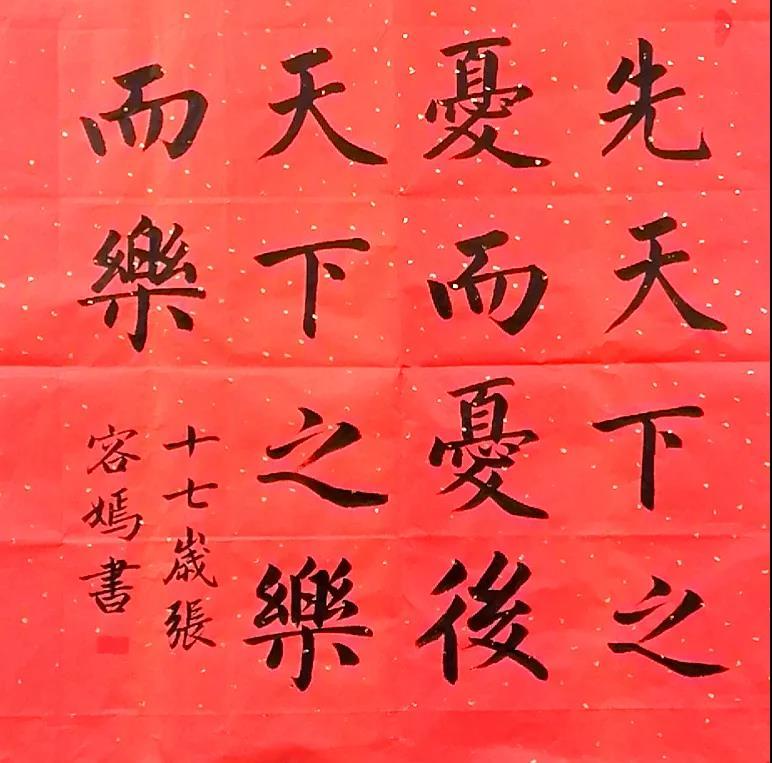 先天下之
憂而憂後
天下之樂
而樂
十七歲張
容嫣書